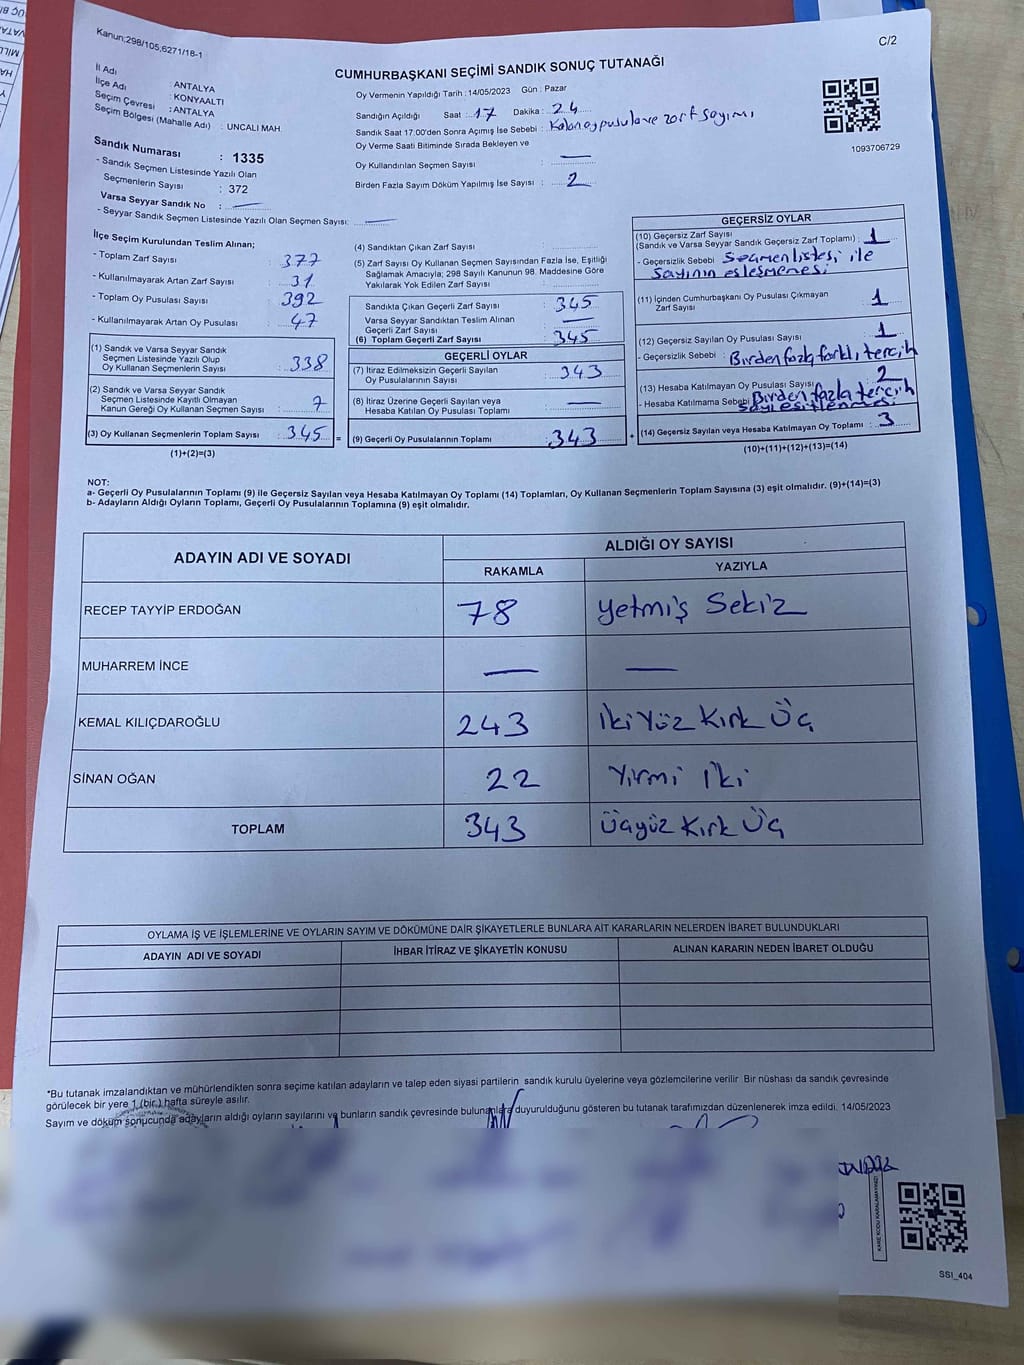 Kanun;298/105;6271/18-1
C/2
CUMHURBAŞKANI SEÇİMİ SANDIK SONUÇ TUTANAĞI
İl Adı : ANTALYA
İlçe Adı : KONYAALTI
Seçim Çevresi : ANTALYA
Seçim Bölgesi (Mahalle Adı) : UNCALI MAH.
Sandık Numarası : 1335
- Sandık Seçmen Listesinde Yazılı Olan
Seçmenlerin Sayısı : 372
Varsa Seyyar Sandık No : —
- Seyyar Sandık Seçmen Listesinde Yazılı Olan Seçmen Sayısı: —
Oy Vermenin Yapıldığı Tarih : 14/05/2023 Gün : Pazar
Sandığın Açıldığı Saat : 17 Dakika : 24
Sandık Saat 17.00'den Sonra Açımış İse Sebebi : Kalan oy pusula ve zarf sayımı
Oy Verme Saati Bitiminde Sırada Bekleyen ve
Oy Kullandırılan Seçmen Sayısı : —
Birden Fazla Sayım Döküm Yapılmış İse Sayısı : 2
1093706729
İlçe Seçim Kurulundan Teslim Alınan;
- Toplam Zarf Sayısı : 377
- Kullanılmayarak Artan Zarf Sayısı : 31
- Toplam Oy Pusulası Sayısı : 392
- Kullanılmayarak Artan Oy Pusulası : 47
(1) Sandık ve Varsa Seyyar Sandık
Seçmen Listesinde Yazılı Olup
Oy Kullanan Seçmenlerin Sayısı : 338
(2) Sandık ve Varsa Seyyar Sandık
Seçmen Listesinde Kayıtlı Olmayan
Kanun Gereği Oy Kullanan Seçmen Sayısı : 7
(3) Oy Kullanan Seçmenlerin Toplam Sayısı : 345 =
(1)+(2)=(3)
(4) Sandıktan Çıkan Zarf Sayısı :
(5) Zarf Sayısı Oy Kullanan Seçmen Sayısından Fazla İse, Eşitliği
Sağlamak Amacıyla; 298 Sayılı Kanunun 98. Maddesine Göre
Yakılarak Yok Edilen Zarf Sayısı :
Sandıkta Çıkan Geçerli Zarf Sayısı : 345
Varsa Seyyar Sandıktan Teslim Alınan
Geçerli Zarf Sayısı : —
(6) Toplam Geçerli Zarf Sayısı : 345
GEÇERLİ OYLAR
(7) İtiraz Edilmeksizin Geçerli Sayılan
Oy Pusulalarının Sayısı : 343
(8) İtiraz Üzerine Geçerli Sayılan veya
Hesaba Katılan Oy Pusulası Toplamı : —
(9) Geçerli Oy Pusulalarının Toplamı : 343 +
GEÇERSİZ OYLAR
(10) Geçersiz Zarf Sayısı
(Sandık ve Varsa Seyyar Sandık Geçersiz Zarf Toplamı) : 1
- Geçersizlik Sebebi : Seçmen listesi ile
sayının eşleşmemesi
(11) İçinden Cumhurbaşkanı Oy Pusulası Çıkmayan
Zarf Sayısı : 1
(12) Geçersiz Sayılan Oy Pusulası Sayısı : 1
- Geçersizlik Sebebi : Birden fazla farklı tercih
(13) Hesaba Katılmayan Oy Pusulası Sayısı : 2
- Hesaba Katılmama Sebebi : Birden fazla tercih
sayı eşitlenmesi
(14) Geçersiz Sayılan veya Hesaba Katılmayan Oy Toplamı : 3
(10)+(11)+(12)+(13)=(14)
NOT:
a- Geçerli Oy Pusulalarının Toplamı (9) ile Geçersiz Sayılan veya Hesaba Katılmayan Oy Toplamı (14) Toplamları, Oy Kullanan Seçmenlerin Toplam Sayısına (3) eşit olmalıdır. (9)+(14)=(3)
b- Adayların Aldığı Oyların Toplamı, Geçerli Oy Pusulalarının Toplamına (9) eşit olmalıdır.
ADAYIN ADI VE SOYADI ALDIĞI OY SAYISI
RAKAMLA YAZIYLA
RECEP TAYYİP ERDOĞAN 78 Yetmiş Sekiz
MUHARREM İNCE — —
KEMAL KILIÇDAROĞLU 243 İki Yüz Kırk Üç
SİNAN OĞAN 22 Yirmi İki
TOPLAM 343 Üçyüz Kırk Üç
OYLAMA İŞ VE İŞLEMLERİNE VE OYLARIN SAYIM VE DÖKÜMÜNE DAİR ŞİKAYETLERLE BUNLARA AİT KARARLARIN NELERDEN İBARET BULUNDUKLARI
ADAYIN ADI VE SOYADI İHBAR İTİRAZ VE ŞİKAYETİN KONUSU ALINAN KARARIN NEDEN İBARET OLDUĞU
*Bu tutanak imzalandıktan ve mühürlendikten sonra seçime katılan adayların ve talep eden siyasi partilerin sandık kurulu üyelerine veya gözlemcilerine verilir Bir nüshası da sandık çevresinde
görülecek bir yere 1 (bir ) hafta süreyle asılır.
Sayım ve döküm sonucunda adayların aldığı oyların sayılarını ve bunların sandık çevresinde bulunanlara duyurulduğunu gösteren bu tutanak tarafımızdan düzenlenerek imza edildi. 14/05/2023
KARE KODU KARALAMAYINIZ!
SSI_404